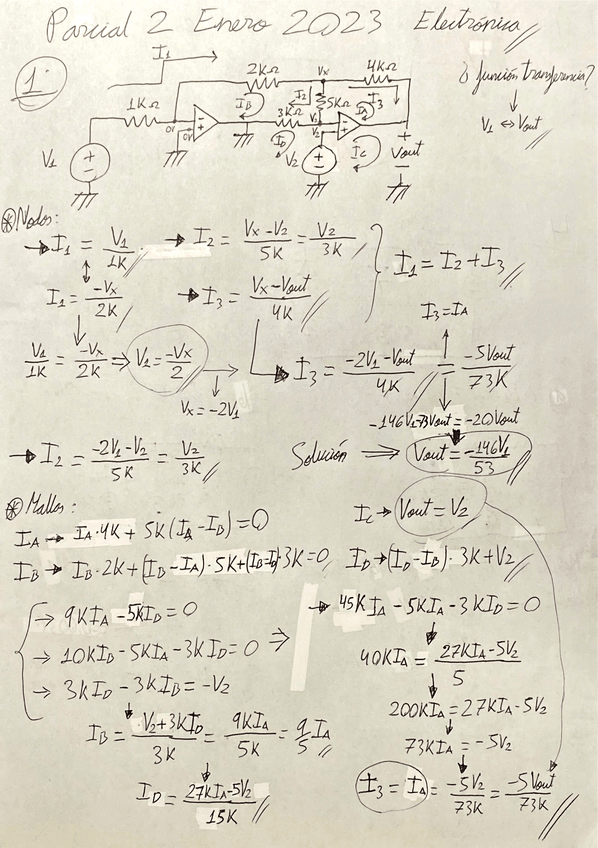 Parcial 2 Enero 2023 Electrónica
1.
I1
2KΩ
Vx
4KΩ
1KΩ
IB
I2
5KΩ
IA
I3
3KΩ
0V
0V
V2
V2
ID
IC
V1
V2
Vout
¿función transferencia?
V1 ↔ Vout
* Nodos:
→ I1 = V1/1K
→ I2 = (Vx - V2)/5K = V2/3K
I1 = I2 + I3
I1 = -Vx/2K
→ I3 = (Vx - Vout)/4K
I3 = IA
V1/1K = -Vx/2K ⇒ V1 = -Vx/2
→ I3 = (-2V1 - Vout)/4K = -5Vout/73K
Vx = -2V1
-146V1 - 73Vout = -20Vout
→ I2 = (-2V1 - V2)/5K = V2/3K
Solución ⇒ Vout = -146V1/53
* Mallas:
IA → IA·4K + 5K(IA - IB) = 0
IC → Vout = V2
IB → IB·2K + (IB - IA)·5K + (IB - ID)·3K = 0
ID → (ID - IB)·3K + V2
→ 9KIA - 5KID = 0
→ 45KIA - 5KIA - 3KID = 0
→ 10KIB - 5KIA - 3KID = 0 ⇒
40KIA = (27KIA - 5V2)/5
→ 3KID - 3KIB = -V2
200KIA = 27KIA - 5V2
IB = (V2 + 3KID)/3K = 9KIA/5K = 9/5 IA
73KIA = -5V2
ID = (27KIA - 5V2)/15K
I3 = IA = -5V2/73K = -5Vout/73K